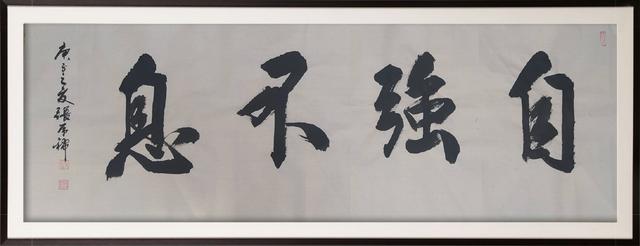 自强不息
庚子之夏張